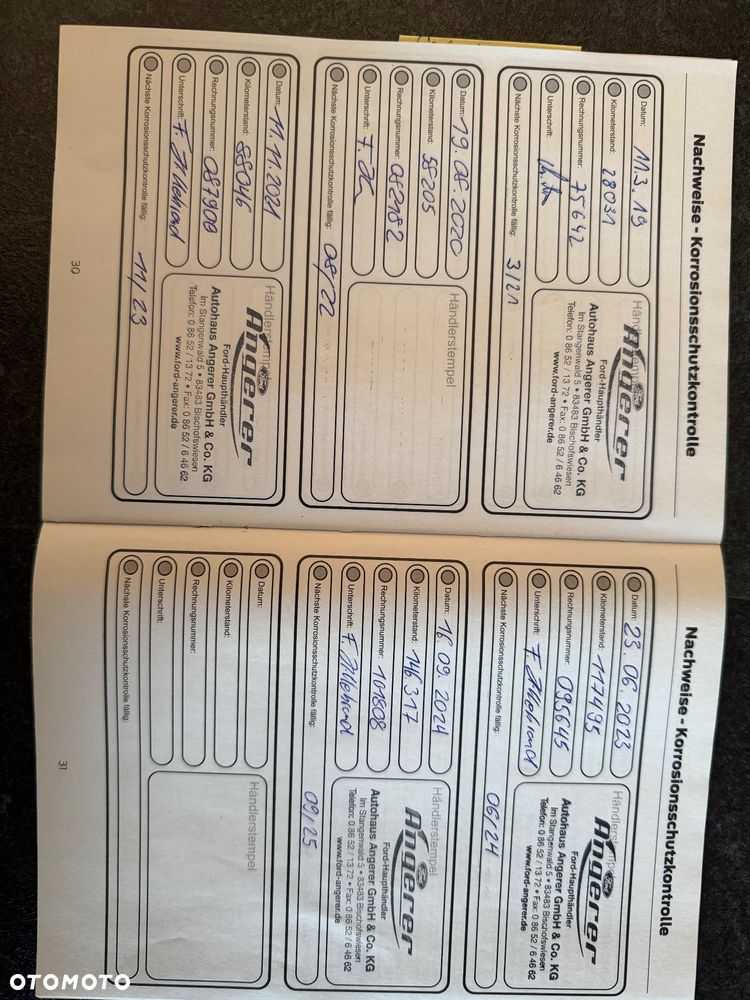 Nachweise - Korrosionsschutzkontrolle
Datum: 11.3.19
Kilometerstand: 28031
Rechnungsnummer: 75642
Unterschrift:
Nächste Korrosionsschutzkontrolle fällig: 3/21
Händlerstempel
Angerer
Ford-Haupthändler
Autohaus Angerer GmbH & Co. KG
Im Stangenwald 5 • 83483 Bischofswiesen
Telefon: 0 86 52 / 13 72 • Fax: 0 86 52 / 6 46 62
www.ford-angerer.de
Datum: 19.08.2020
Kilometerstand: 58205
Rechnungsnummer: 082182
Unterschrift:
Nächste Korrosionsschutzkontrolle fällig: 08/22
Händlerstempel
Datum: 11.11.2021
Kilometerstand: 88046
Rechnungsnummer: 087900
Unterschrift:
Nächste Korrosionsschutzkontrolle fällig: 11/23
Händlerstempel
Angerer
Ford-Haupthändler
Autohaus Angerer GmbH & Co. KG
Im Stangenwald 5 • 83483 Bischofswiesen
Telefon: 0 86 52 / 13 72 • Fax: 0 86 52 / 6 46 62
www.ford-angerer.de
30
Nachweise - Korrosionsschutzkontrolle
Datum: 23.06.2023
Kilometerstand: 117495
Rechnungsnummer: 095645
Unterschrift:
Nächste Korrosionsschutzkontrolle fällig: 06/24
Händlerstempel
Angerer
Ford-Haupthändler
Autohaus Angerer GmbH & Co. KG
Im Stangenwald 5 • 83483 Bischofswiesen
Telefon: 0 86 52 / 13 72 • Fax: 0 86 52 / 6 46 62
www.ford-angerer.de
Datum: 16.09.2024
Kilometerstand: 146317
Rechnungsnummer: 101808
Unterschrift:
Nächste Korrosionsschutzkontrolle fällig: 09/25
Händlerstempel
Angerer
Ford-Haupthändler
Autohaus Angerer GmbH & Co. KG
Im Stangenwald 5 • 83483 Bischofswiesen
Telefon: 0 86 52 / 13 72 • Fax: 0 86 52 / 6 46 62
www.ford-angerer.de
Datum:
Kilometerstand:
Rechnungsnummer:
Unterschrift:
Nächste Korrosionsschutzkontrolle fällig:
Händlerstempel
31
OTOMOTO